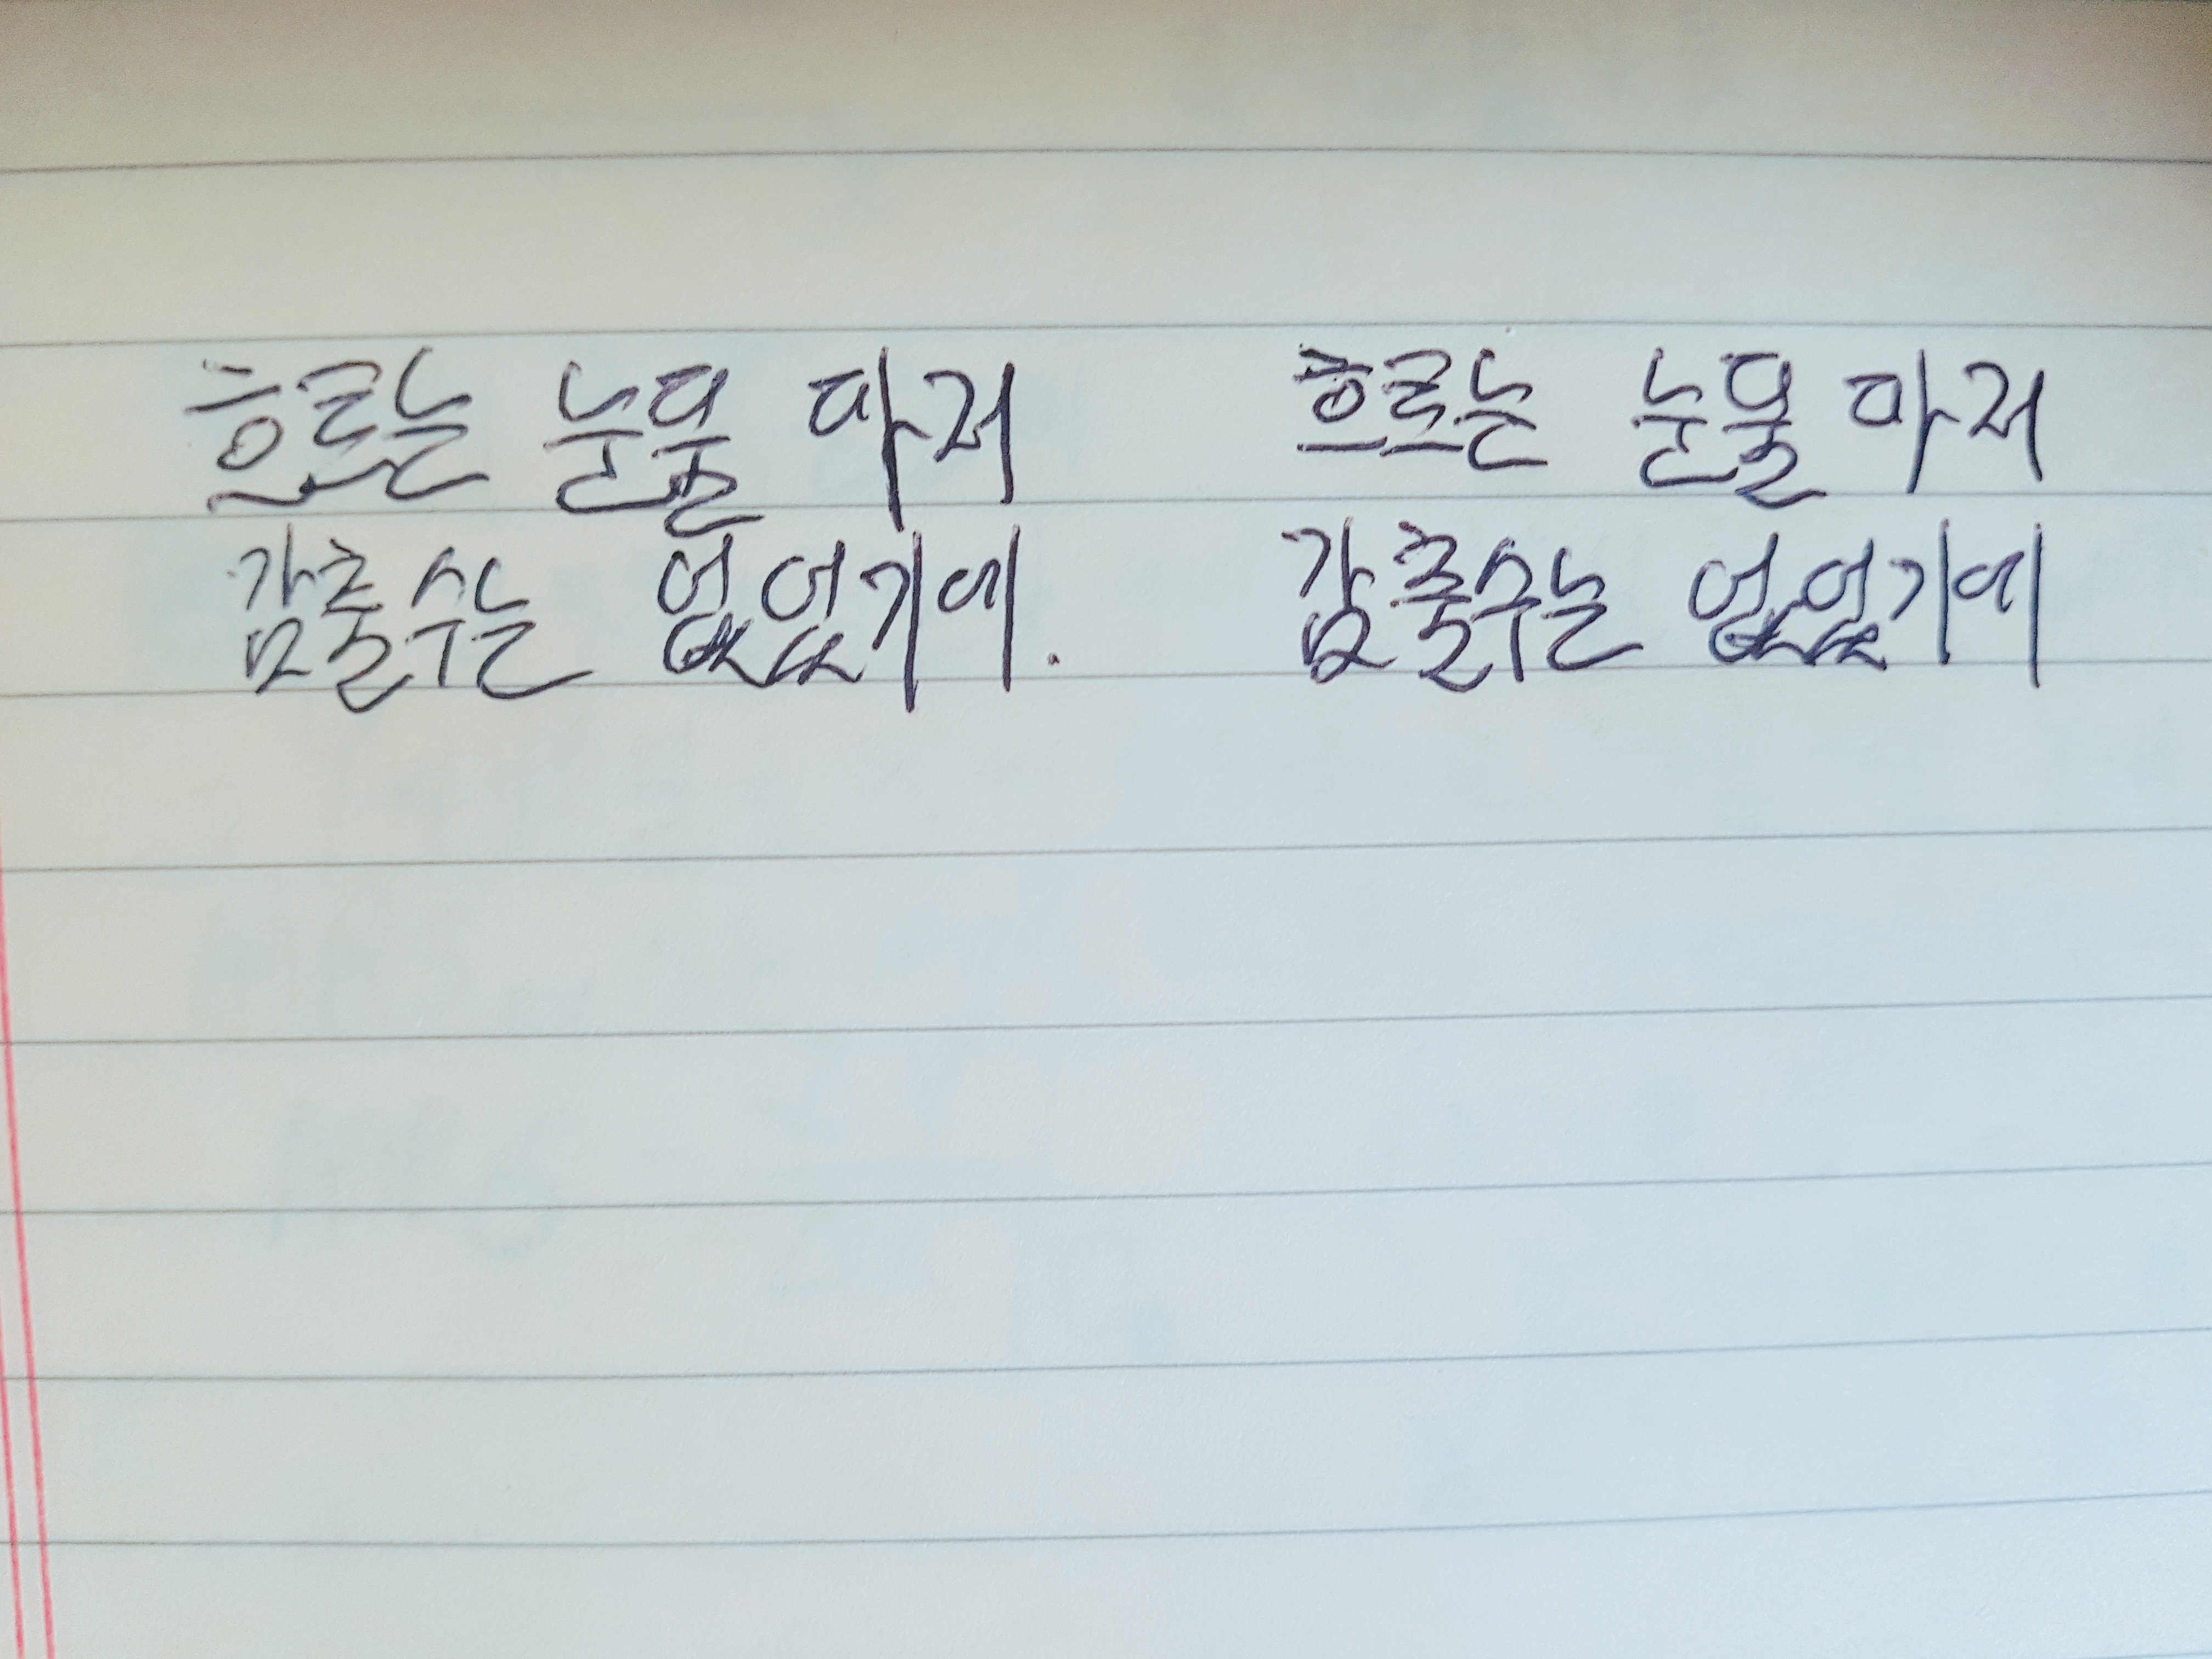 흐르는 눈물 마저 흐르는 눈물 마저
감출수는 없었기에. 감출수는 없었기에